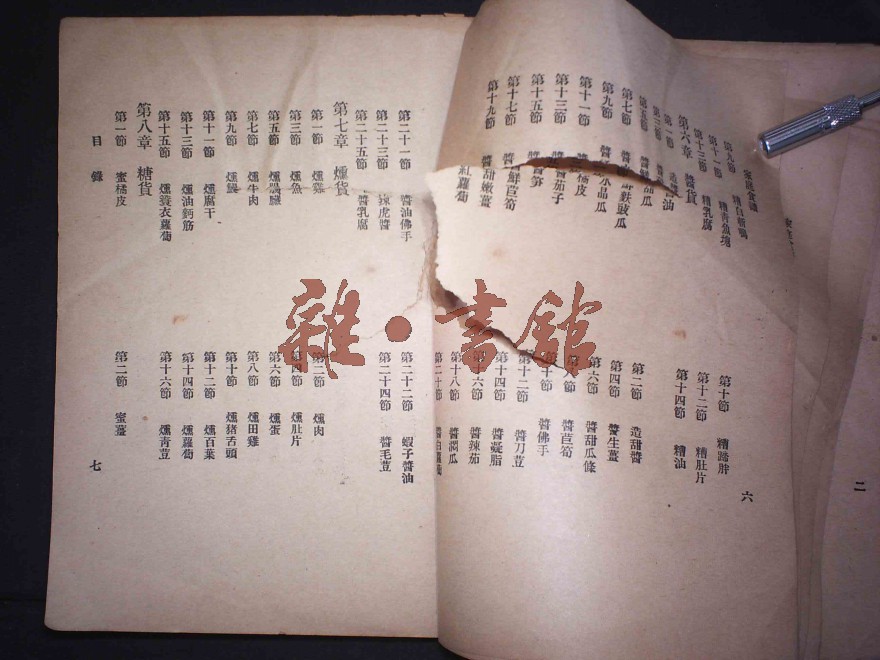 家庭食譜
第九節　糟白斬鷄
第十節　糟蹄胖
第十一節　糟青魚塊
第十二節　糟肚片
第十三節　糟乳腐
第十四節　糟油
第六章　醬貨
第一節　造醬油
第二節　造甜醬
第三節　醬甜瓜
第四節　醬生薑
第五節　醬
第六節　醬甜瓜條
第七節　豉瓜
第八節　醬萵筍
第九節　醬水晶瓜
第十節　醬佛手
第十一節　橘皮
第十二節　醬刀荳
第十三節　醬茄子
第十四節　醬凝脂
第十五節　醬笋
第十六節　醬辣茄
第十七節　醬鮮萵筍
第十八節　醬潤瓜
第十九節　醬甜嫩薑
第二十節
紅蘿蔔
第二十一節　醬油佛手
第二十二節　蝦子醬油
第二十三節　辣虎醬
第二十四節　醬毛荳
第二十五節　醬乳腐
第七章　燻貨
第一節　燻雞
第二節　燻肉
第三節　燻魚
第四節　燻肚片
第五節　燻腸臟
第六節　燻蛋
第七節　燻牛肉
第八節　燻田雞
第九節　燻鰻
第十節　燻豬舌頭
第十一節　燻腐干
第十二節　燻百葉
第十三節　燻油麪筋
第十四節　燻蘿蔔
第十五節　燻蓑衣蘿蔔
第十六節　燻青荳
第八章　糖貨
第一節　蜜橘皮
第二節　蜜薑
目錄
六
七
二
雜·書館